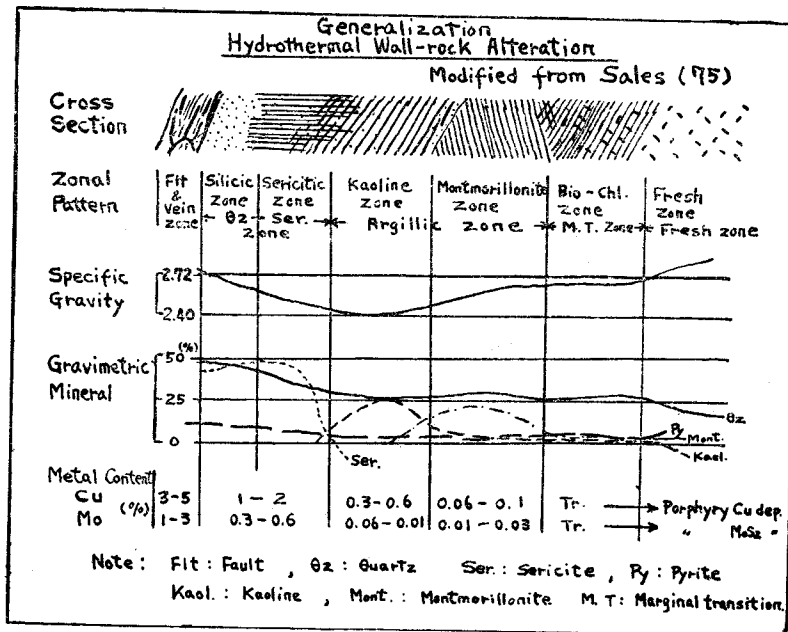 Generalization
Hydrothermal Wall-rock Alteration
Modified from Sales (75)
Cross
Section
Zonal
Pattern
Flt
&
Vein
zone
Silicic
zone
Sericitic
zone
← Qz — Ser. →
zone
Kaoline
zone
Montmorillonite
zone
← Argillic zone →
Bio-Chl.
zone
M.T. Zone
Fresh
zone
Fresh zone
Specific
Gravity
2.72
2.40
Gravimetric
Mineral
(%)
50
25
0
Ser.
Qz
Py
Mont.
Kaol.
Metal Content
Cu (%) 3-5 1-2 0.3-0.6 0.06-0.1 Tr. → Porphyry Cu dep.
Mo 1-3 0.3-0.6 0.06-0.01 0.01-0.03 Tr. → " MoS2 "
Note : Flt : Fault , Qz : Quartz Ser. : Sericite , Py : Pyrite
Kaol. : Kaoline , Mont. : Montmorillonite M. T : Marginal transition.